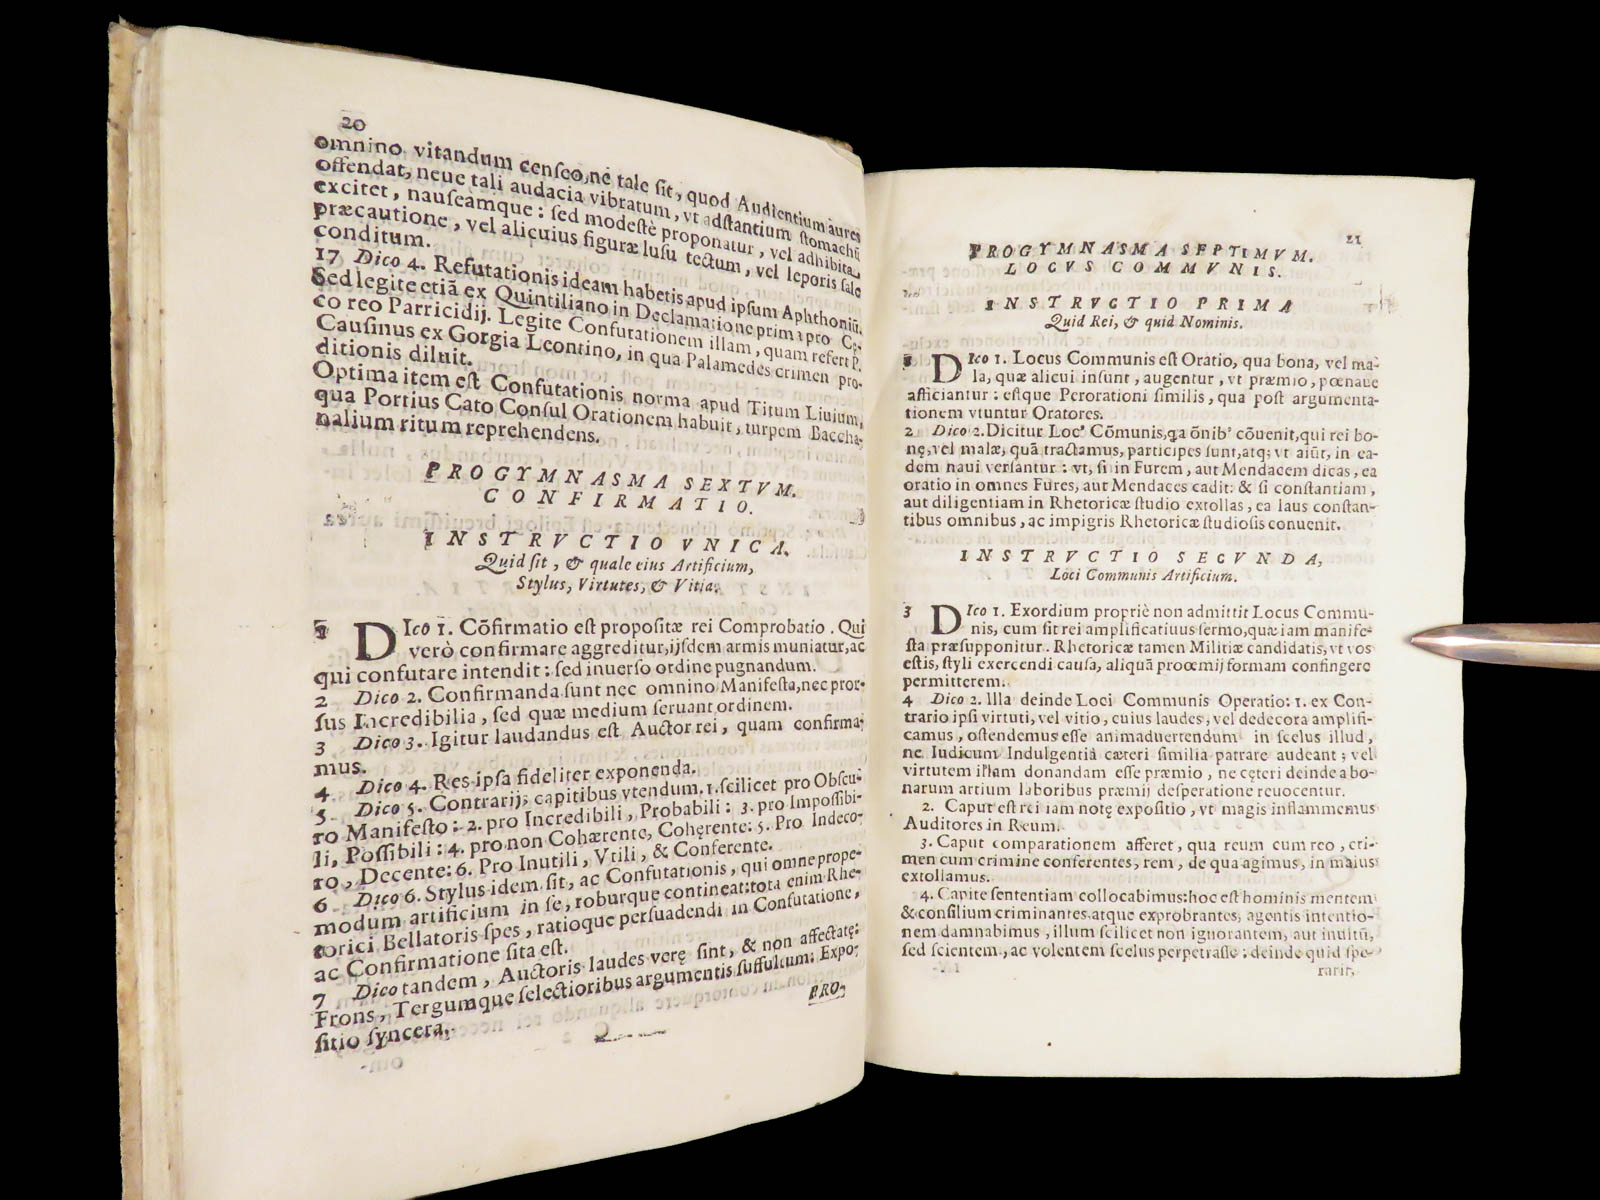 20
omnino vitandum cenſeo,nè tale ſit, quod Audientium aures
offendat, neue tali audacia vibratum, vt adſtantium ſtomachũ
excitet, nauſeamque: ſed modeſtè proponatur, vel adhibita
præcautione, vel alicuius figuræ luſu tectum, vel leporis ſale
conditum.
17 Dico 4. Refutationis ideam habetis apud ipſum Aphthoniũ.
Sed legite etiã ex Quintiliano in Declamatione prima pro Cę-
co reo Parricidij. Legite Confutationem illam, quam refert P.
Cauſinus ex Gorgia Leontino, in qua Palamedes crimen pro-
ditionis diluit.
Optima item eſt Confutationis norma apud Titum Liuium,
qua Portius Cato Conſul Orationem habuit, turpem Baccha-
nalium ritum reprehendens.
PROGYMNASMA SEXTVM.
CONFIRMATIO.
INSTRVCTIO VNICA.
Quid ſit, & quale eius Artificium,
Stylus, Virtutes, & Vitia.
1 DIco 1. Cõfirmatio eſt propoſitæ rei Comprobatio. Qui
verò confirmare aggreditur,ijſdem armis muniatur,ac
qui confutare intendit: ſed inuerſo ordine pugnandum.
2 Dico 2. Confirmanda ſunt nec omnino Manifeſta,nec pror-
ſus Incredibilia, ſed quæ medium ſeruant ordinem.
3 Dico 3. Igitur laudandus eſt Auctor rei, quam confirma-
mus.
4 Dico 4. Res ipſa fideliter exponenda.
5 Dico 5. Contrarijs capitibus vtendum. 1. ſcilicet pro Obſcu-
ro Manifeſto: 2. pro Incredibili, Probabili: 3. pro Impoſſibi-
li, Poſſibili: 4. pro non Cohærente, Cohęrente: 5. Pro Indeco-
ro, Decente: 6. Pro Inutili, Vtili, & Conferente.
6 Dico 6. Stylus idem ſit, ac Confutationis, qui omne prope-
modum artificium in ſe, roburque contineat: tota enim Rhe-
torici Bellatoris ſpes, ratioque perſuadendi in Confutatione,
ac Confirmatione ſita eſt.
7 Dico tandem, Auctoris laudes verę ſint, & non affectatę:
Frons, Tergumque ſelectioribus argumentis ſuffultum: Expo-
ſitio ſyncera.
PRO-
21
PROGYMNASMA SEPTIMVM.
LOCVS COMMVNIS.
INSTRVCTIO PRIMA
Quid Rei, & quid Nominis.
1 DIco 1. Locus Communis eſt Oratio, qua bona, vel ma-
la, quæ alicui inſunt, augentur, vt præmio, pœnaue
afficiantur: eſtque Perorationi ſimilis, qua poſt argumenta-
tionem vtuntur Oratores.
2 Dico 2. Dicitur Loc' Cõmunis,qa õnib' cõuenit,qui rei bo-
nę,vel malæ, quã tractamus, participes ſunt,atq; vt aiũt, in ea-
dem naui verſantur: vt, ſi in Furem, aut Mendacem dicas, ea
oratio in omnes Fures, aut Mendaces cadit: & ſi conſtantiam,
aut diligentiam in Rhetoricæ ſtudio extollas, ea laus conſtan-
tibus omnibus, ac impigris Rhetoricæ ſtudioſis conuenit.
INSTRVCTIO SECVNDA,
Loci Communis Artificium.
3 DIco 1. Exordium propriè non admittit Locus Commu-
nis, cum ſit rei amplificatiuus ſermo,quæ iam manife-
ſta præſupponitur. Rhetoricæ tamen Militiæ candidatis, vt vos
eſtis, ſtyli exercendi cauſa, aliquã proœmij formam confingere
permitterem.
4 Dico 2. Illa deinde Loci Communis Operatio: 1. ex Con-
trario ipſi virtuti, vel vitio, cuius laudes, vel dedecora amplifi-
camus, oſtendemus eſſe animaduertendum in ſcelus illud,
ne Iudicum Indulgentià cæteri ſimilia patrare audeant; vel
virtutem illam donandam eſſe præmio, ne cęteri deinde a bo-
narum artium laboribus præmij deſperatione reuocentur.
2. Caput eſt rei iam notę expoſitio, vt magis inflammemus
Auditores in Reum.
3. Caput comparationem afferet, qua reum cum reo, cri-
men cum crimine conferentes, rem, de qua agimus, in maius
extollamus.
4. Capite ſententiam collocabimus: hoc eſt hominis mentem
& conſilium criminantes atque exprobrantes, agentis intentio-
nem damnabimus, illum ſcilicet non ignorantem, aut inuitũ,
ſed ſcientem, ac volentem ſcelus perpetraſſe: deinde quid ſpe-
rarit,